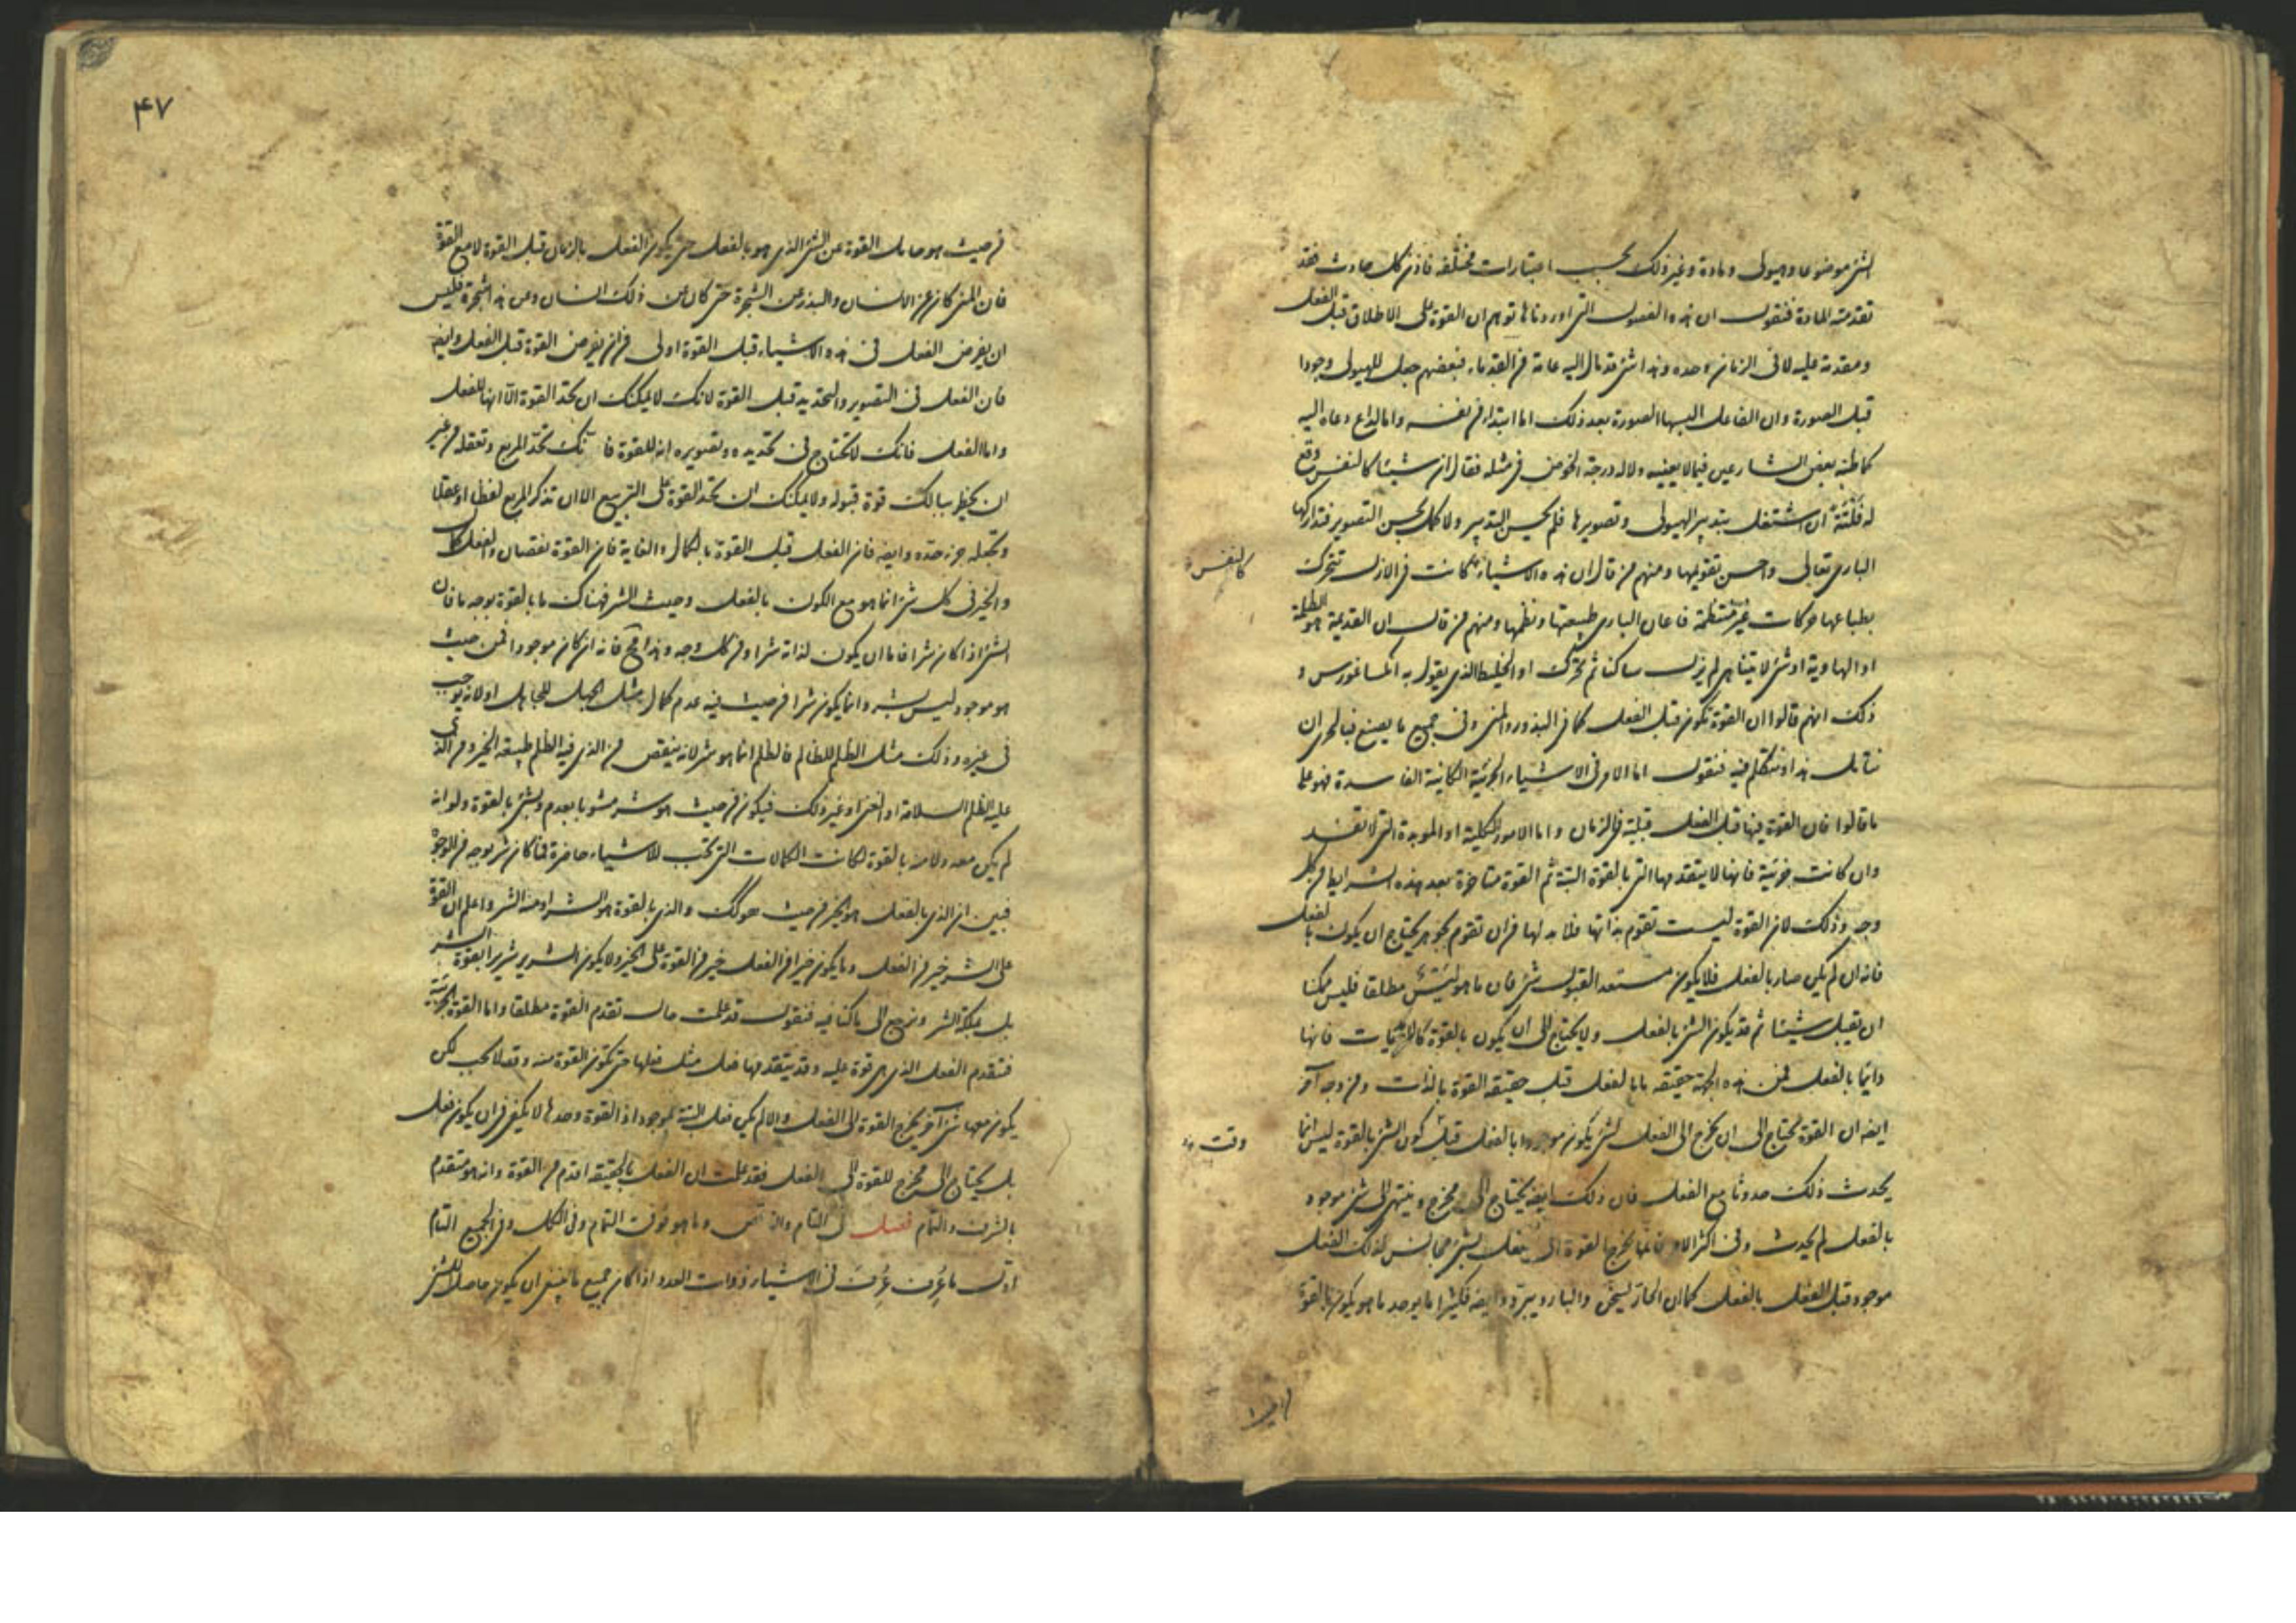 الشئ موضوعا وهيولى ومادة وغير ذلك بحسب اعتبارات مختلفة فاذن كل حادث فقد
تقدمته المادة فنقول ان هذه الفصول التى اوردناها توهم ان القوة على الاطلاق قبل الفعل
ومقدمة عليه لا فى الزمان وحده وهذا شئ قد مال اليه عامة من القدماء فبعضهم جعل للهيولى وجودا
قبل الصورة وان الفاعل البسها الصورة بعد ذلك اما ابتداء من نفسه واما لداع دعاه اليه
كما ظنه بعض الشارعين فيما لا يعنيه ولا له درجة الخوض فى مثله فقال ان شيئا كالنفس وقع
له فَلْتَةً ان اشتغل بتدبير الهيولى وتصويرها فلم يحسن التدبير ولا كمل لحسن التصوير فتداركها
البارى تعالى واحسن تقويمها ومنهم من قال ان هذه الاشياء كانت فى الازل تتحرك
كالنفس
بطباعها حركات غير منتظمة فاعان البارى طبيعتها ونظمها ومنهم من قال ان القديم هو الظلمة
او الهاوية او شئ لا يتناهى لم يزل ساكنا ثم تحرك او الخليط الذى يقول به انكساغورس و
ذلك انهم قالوا ان القوة تكون قبل الفعل كما فى البذور والمنى وفى جميع ما يصنع فبالحرى ان
نتأمل هذا ونتكلم فيه فنقول اما الامر فى الاشياء الجزئية الكائنة الفاسدة فهو على
ما قالوا فان القوة فيها قبل الفعل قبلية فى الزمان واما الامور الكلية او المؤبدة التى لا تفسد
وان كانت جزئية فانها لا يتقدمها التى بالقوة البتة ثم القوة متاخرة بعد هذه الشرايط من كل
وجه وذلك لان القوة ليست تقوم بذاتها فلا بد لها من ان تقوم بجوهر يحتاج ان يكون بالفعل
فانه ان لم يكن صار بالفعل فلا يكون مستعد القبول شئ فان ما هو ليس شئ مطلقا فليس ممكنا
ان يقبل شيئا ثم قد يكون الشئ بالفعل ولا يحتاج الى ان يكون بالقوة كالابديات فانها
دائما بالفعل فمن هذه الجهة حقيقة ما بالفعل قبل حقيقة القوة بالذات ومن وجه آخر
ايضا ان القوة تحتاج الى ان تخرج الى الفعل لشئ يكون موجودا بالفعل قبل كون الشئ بالقوة ليس انما
وقت
يحدث ذلك حدوثا مع الفعل فان ذلك ايضا يحتاج الى مخرج وينتهى الى شئ موجود
بالفعل لم يحدث وفى اكثر الامر فانما يخرج القوة الى الفعل شئ مجانس لذلك الفعل
موجود قبل الفعل بالفعل كما ان الحار يسخن والبارد يبرد وايضا فكثيرا ما يوجد ما هو يكون بالقوة
۴۷
من حيث هو حامل القوة عن الشئ الذى هو بالفعل حتى يكون الفعل بالزمان قبل القوة لا مع القوة
فان المنى كان عن الانسان والبذر عن الشجرة حتى كان عن ذلك انسان ومن هذا شجرة فليس
ان يفرض الفعل فى هذه الاشياء قبل القوة اولى من ان يفرض القوة قبل الفعل وايضا
فان الفعل فى التصوير والتحديد قبل القوة لانك لا يمكنك ان تحد القوة الا انها للفعل
واما الفعل فانك لا تحتاج فى تحديده وتصويره انه للقوة فانك تحد المربع وتعقله من غير
ان يخطر ببالك قوة قبوله ولا يمكنك ان تحد القوة على التربيع الا ان تذكر المربع لفظا او عقلا
وتجعله جزء حده وايضا فان الفعل قبل القوة بالكمال والغاية فان القوة نقصان والفعل كمال
والخير فى كل شئ انما هو مع الكون بالفعل وحيث الشر فهناك ما بالقوة بوجه ما فان
الشئ اذا كان شرا فاما ان يكون لذاته شرا ومن كل وجه وهذا مح فانه ان كان موجودا فمن حيث
هو موجود ليس بشر وانما يكون شرا من حيث فيه عدم كمال مثل الجهل للجاهل او لانه يوجب
فى غيره وذلك مثل الظلم للظالم فالظلم انما هو شر لانه ينقص من الذى فيه الظلم طبيعة الخير ومن الذى
عليه الظلم السلامة او الغنى او غير ذلك فيكون من حيث هو شر مشوبا بعدم وبشئ بالقوة ولو انه
لم يكن معه ولا منه بالقوة لكانت الكمالات التى تجب للاشياء حاضرة فما كان شر بوجه من الوجوه
فبين ان الذى بالفعل هو الخير من حيث هو كك والذى بالقوة هو الشر او منه الشر واعلم ان القوة
على الشر خير من الفعل وما يكون خيرا من الفعل خير من القوة على الخير ولا يكون الشرير شريرا بقوة الشر
بل بملكة الشر ونرجع الى ما كنا فيه فنقول قد علمت حال تقدم القوة مطلقا واما القوة الجزئية
فتقدم الفعل الذى هى قوة عليه وقد يتقدمها فعل مثل فعلها حتى تكون القوة منه وقد لا يجب لكن
يكون معها شئ آخر يخرج القوة الى الفعل والا لم يكن فعل البتة بموجود اذ القوة وحدها لا يكفى فى ان يكون فعل
بل يحتاج الى مخرج للقوة الى الفعل فقد علمت ان الفعل بالحقيقة اقدم من القوة وانه هو متقدم
بالشرف والتمام فصل فى التام والناقص وما هو فوق التمام وفى الكل وفى الجميع التام
اول ما عُرِف عُرِفَ فى الاشياء ذوات العدد اذا كان جميع ما ينبغى ان يكون حاصلا للشئ